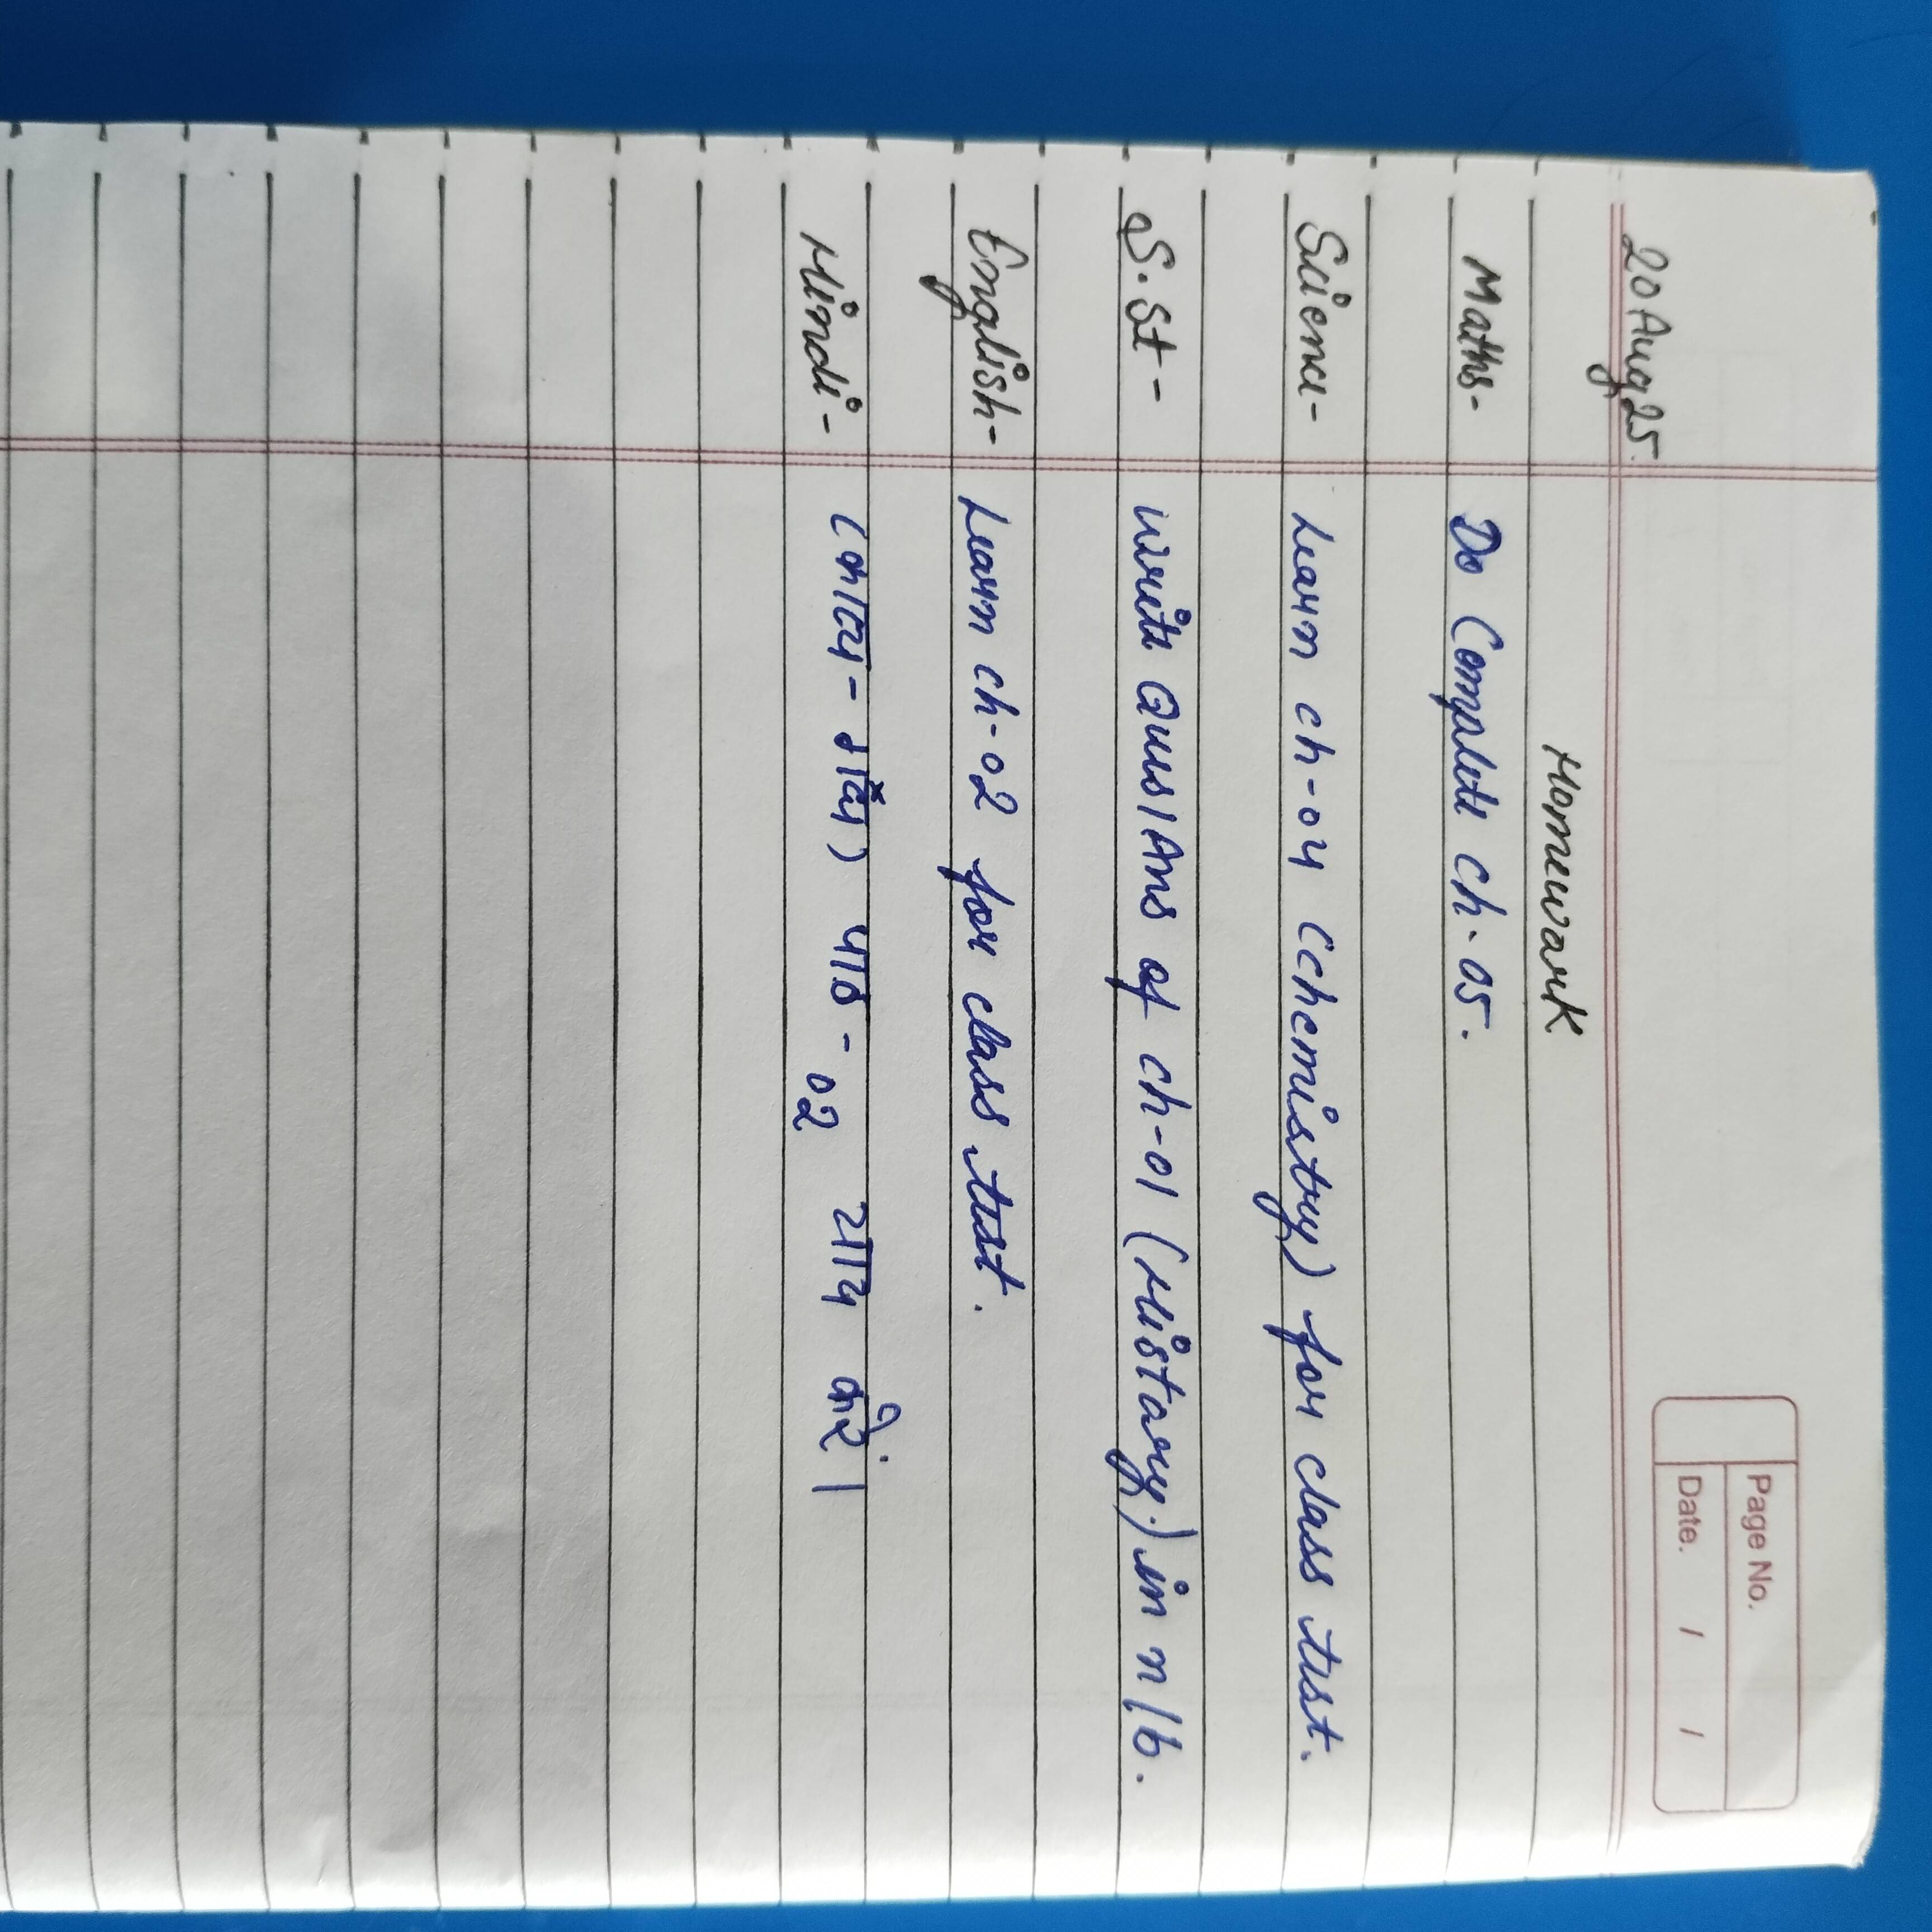 Page No.
Date. / /
20 Aug 25
Homework
Maths- Do Complete ch-05.
Science- Learn ch-04 (chemistry) for class test.
S.St- Write Ques/Ans of ch-01 (History) in n/b.
English- Learn ch-02 for class test.
Hindi- (काव्य- खंड) पाठ - 02 याद करें।